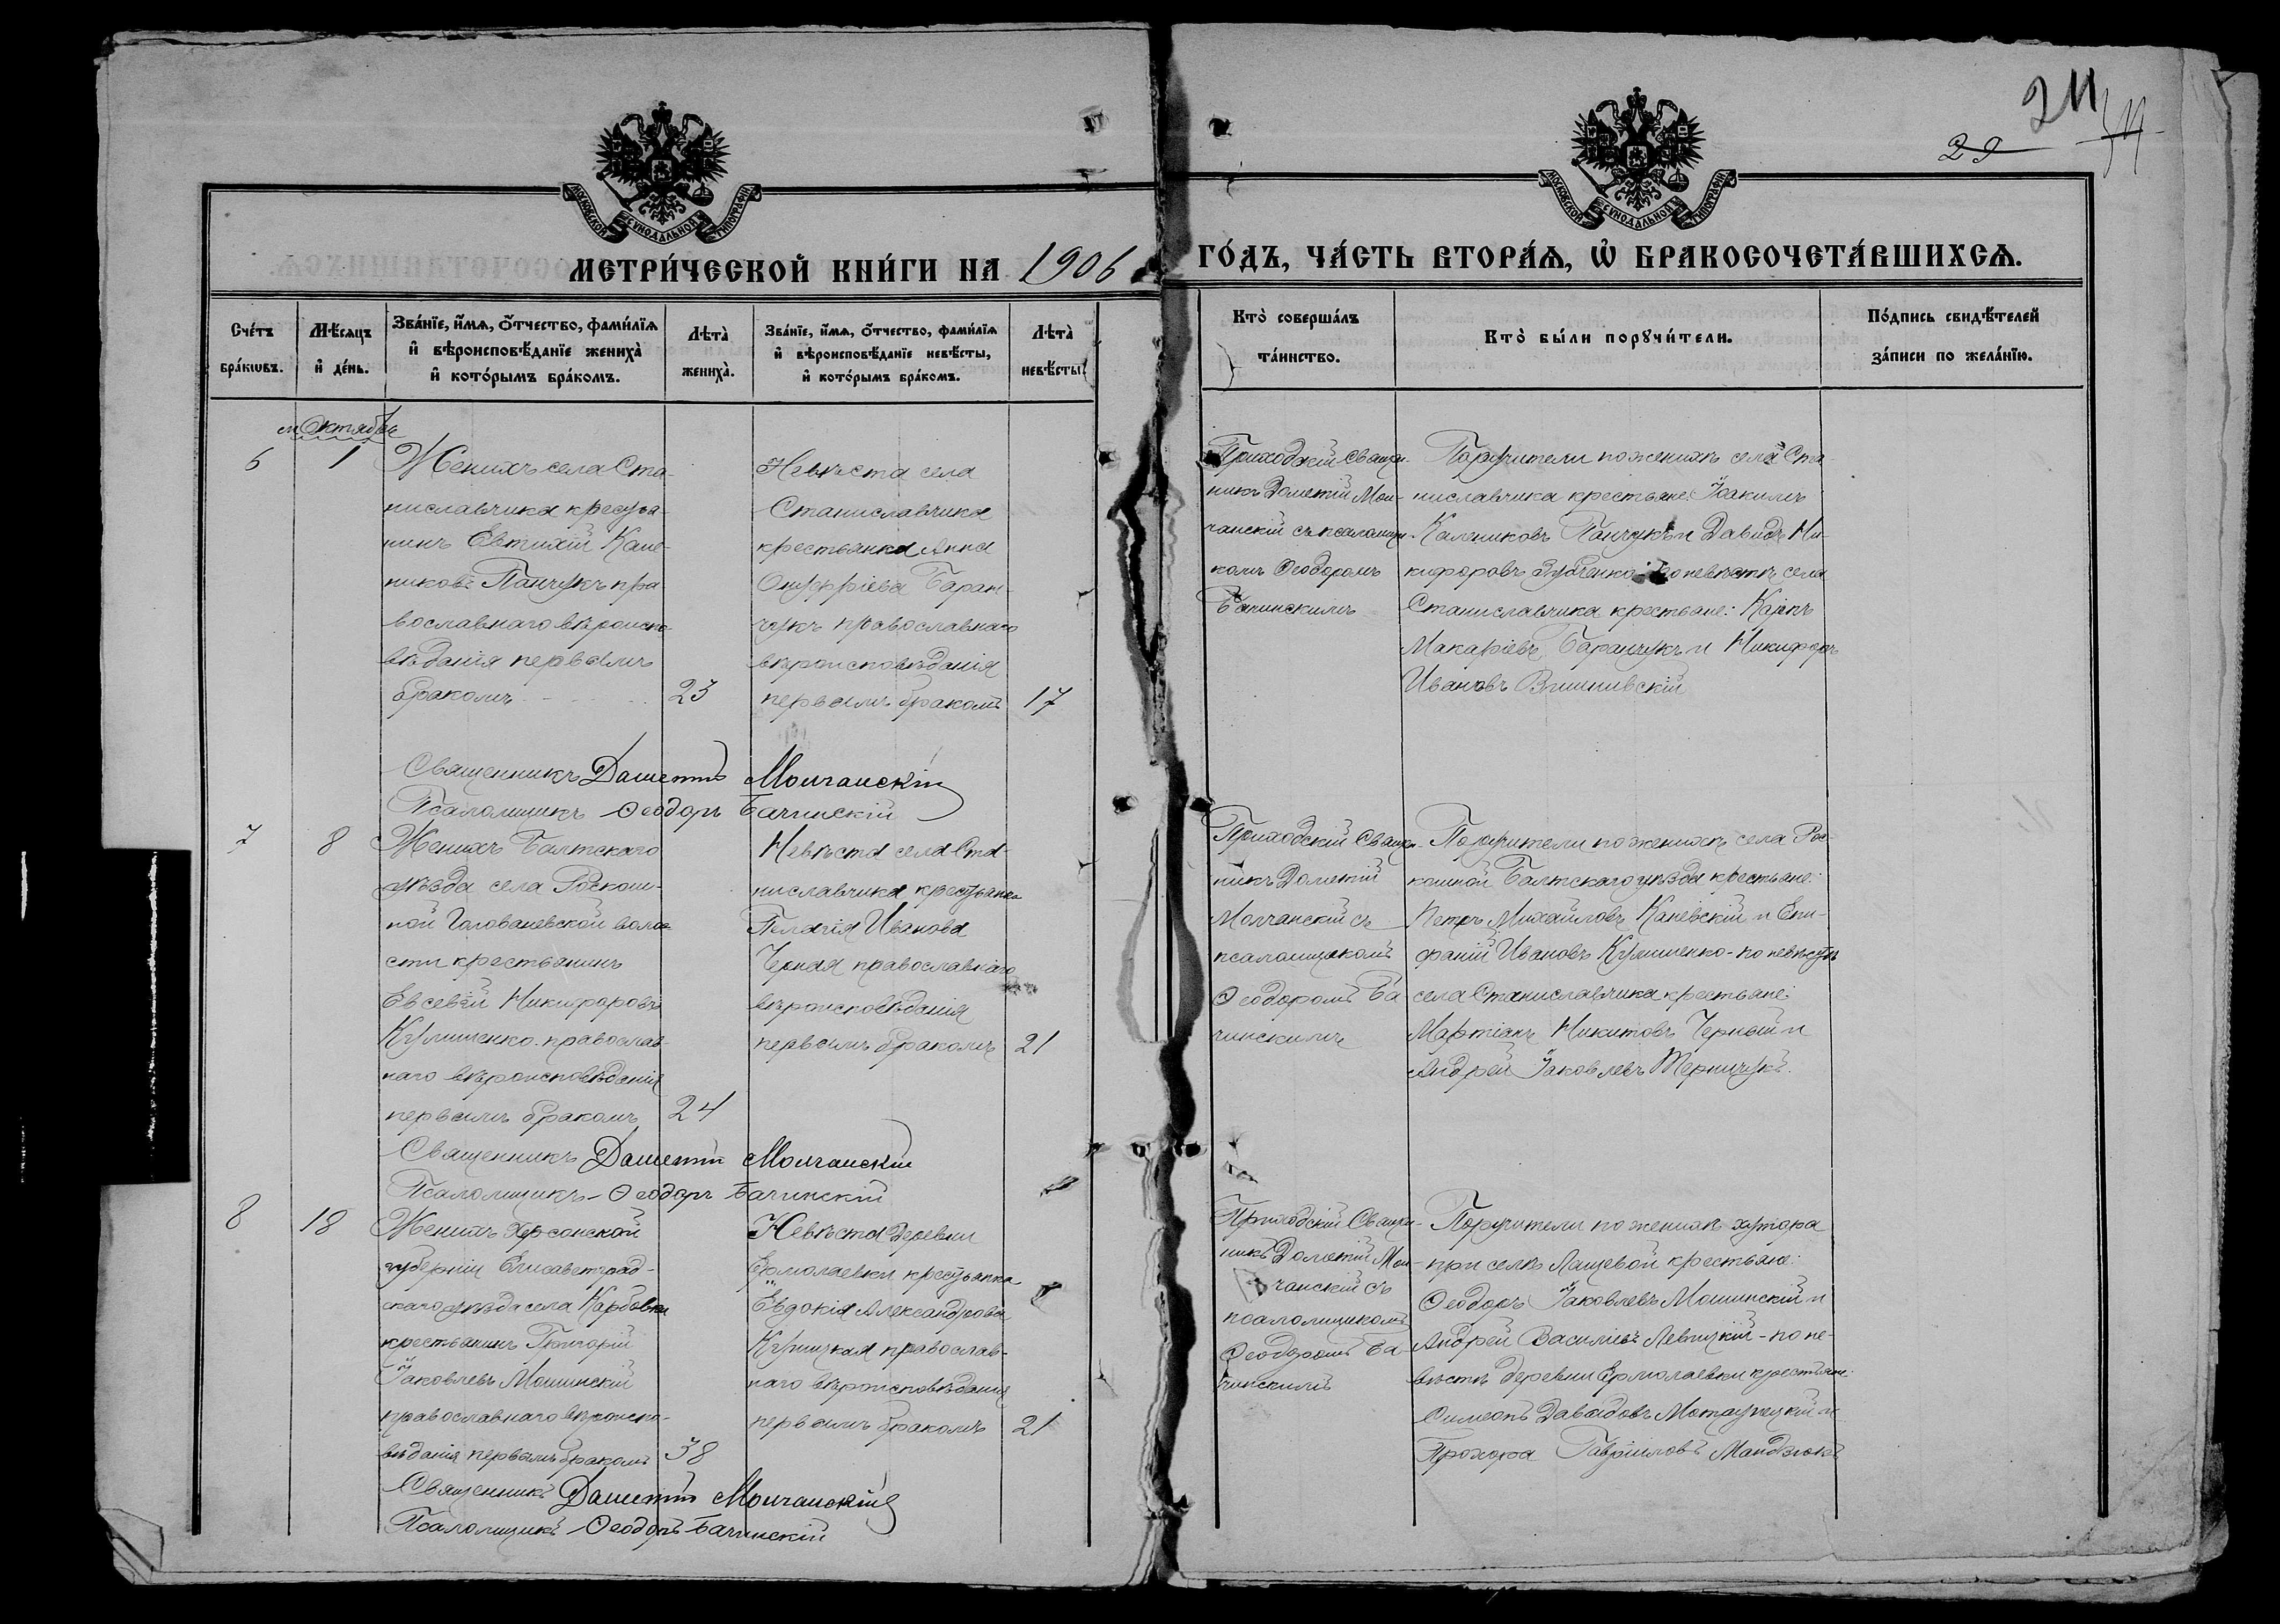 24
29
МОСКОВСКОЙ СѴНОДАЛЬНОЙ ТИПОГРАФІИ
МОСКОВСКОЙ СѴНОДАЛЬНОЙ ТИПОГРАФІИ
МЕТРИ́ЧЕСКОЙ КНИ́ГИ НА 1906 ГО́ДЪ, ЧА́СТЬ ВТОРА́Ѧ, Ѽ БРАКОСОЧЕТА́ВШИХСѦ.
Сче́тъ бра́кѡвъ.
Мѣ́сяцъ и҆ де́нь.
Зва́нїе, и҆́мѧ, ѻ҆́тчество, фами́лїѧ
и҆ вѣроисповѣ́данїе жениха̀
и҆ кото́рымъ бра́комъ.
Лѣта̀ жениха̀.
Зва́нїе, и҆́мѧ, ѻ҆́тчество, фами́лїѧ
и҆ вѣроисповѣ́данїе невѣ́сты,
и҆ кото́рымъ бра́комъ.
Лѣта̀ невѣ́сты.
Кто̀ соверша́лъ
та́инство.
Кто̀ бы́ли порꙋчи́тели.
По́дпись свидѣ́телей
за́писи по жела́нїю.
м Октябрь
6
1
Женихъ села Ста-
ниславчика крестья-
нинъ Евтихій Кале-
никовъ Панчукъ пра
вославнаго вѣроиспо-
вѣданія первымъ
бракомъ
23
Невѣста села
Станиславчика
крестьянка Анна
Онуфріева Баран-
чукъ православнаго
вѣроисповѣданія
первымъ бракомъ
17
Приходскій Священ-
никъ Дометій Мол-
чанскій съ псаломщи-
комъ Ѳеодоромъ
Бачинскимъ
Поручители по женихѣ села Ста-
ниславчика крестьяне: Іоакимъ
Калениковъ Панчукъ и Давидъ Ни-
кифоровъ Зубченко по невѣстѣ села
Станиславчика крестьяне: Карпъ
Макаріевъ Баранчукъ и Никифоръ
Ивановъ Вишнивскій
Священникъ Дометій Молчанскій
Псаломщикъ Ѳеодоръ Бачинскій
7
8
Женихъ Балтскаго
уѣзда села Роскош-
ной Голованевской воло-
сти крестьянинъ
Евсевій Никифоровъ
Кулишенко православ-
наго вѣроисповѣданія
первымъ бракомъ
24
Невѣста села Ста-
ниславчика крестьянка
Пелагія Иванова
Черная православнаго
вѣроисповѣданія
первымъ бракомъ
21
Приходскій Священ-
никъ Дометій
Молчанскій съ
псаломщикомъ
Ѳеодоромъ Ба
чинскимъ
Поручители по женихѣ села Рос-
кошной Балтскаго уѣзда крестьяне:
Петръ Михайловъ Каневскій и Епи-
фаній Ивановъ Кулишенко - по невѣстѣ
села Станиславчика крестьяне:
Мартіанъ Никитовъ Черный и
Андрей Іаковлевъ
Священникъ Дометій Молчанскій
Псаломщикъ - Ѳеодоръ Бачинскій
8
18
Женихъ Херсонской
губерніи Елисаветград-
скаго уѣзда села Карбовки
крестьянинъ Григорій
Іаковлевъ Мошинскій
православнаго вѣроиспо-
вѣданія первымъ бракомъ
38
Невѣста деревни
Ермолаевки крестьянка
Евдокія Александрова
православ-
наго вѣроисповѣданія
первымъ бракомъ
21
Приходскій Священ-
никъ Дометій Мол-
чанскій съ
псаломщикомъ
Ѳеодоромъ Ба-
чинскимъ
Поручители по женихѣ хутора
при селѣ Лащевой крестьяне:
Ѳеодоръ Іаковлевъ Мошинскій и
Андрей Василіевъ Левицкій - по не-
вѣстѣ деревни Ермолаевки крестьяне:
Симеонъ Давидовъ и
Прохоръ Гавріиловъ Мандзюкъ
Священникъ Дометій Молчанскій
Псаломщикъ - Ѳеодоръ Бачинскій